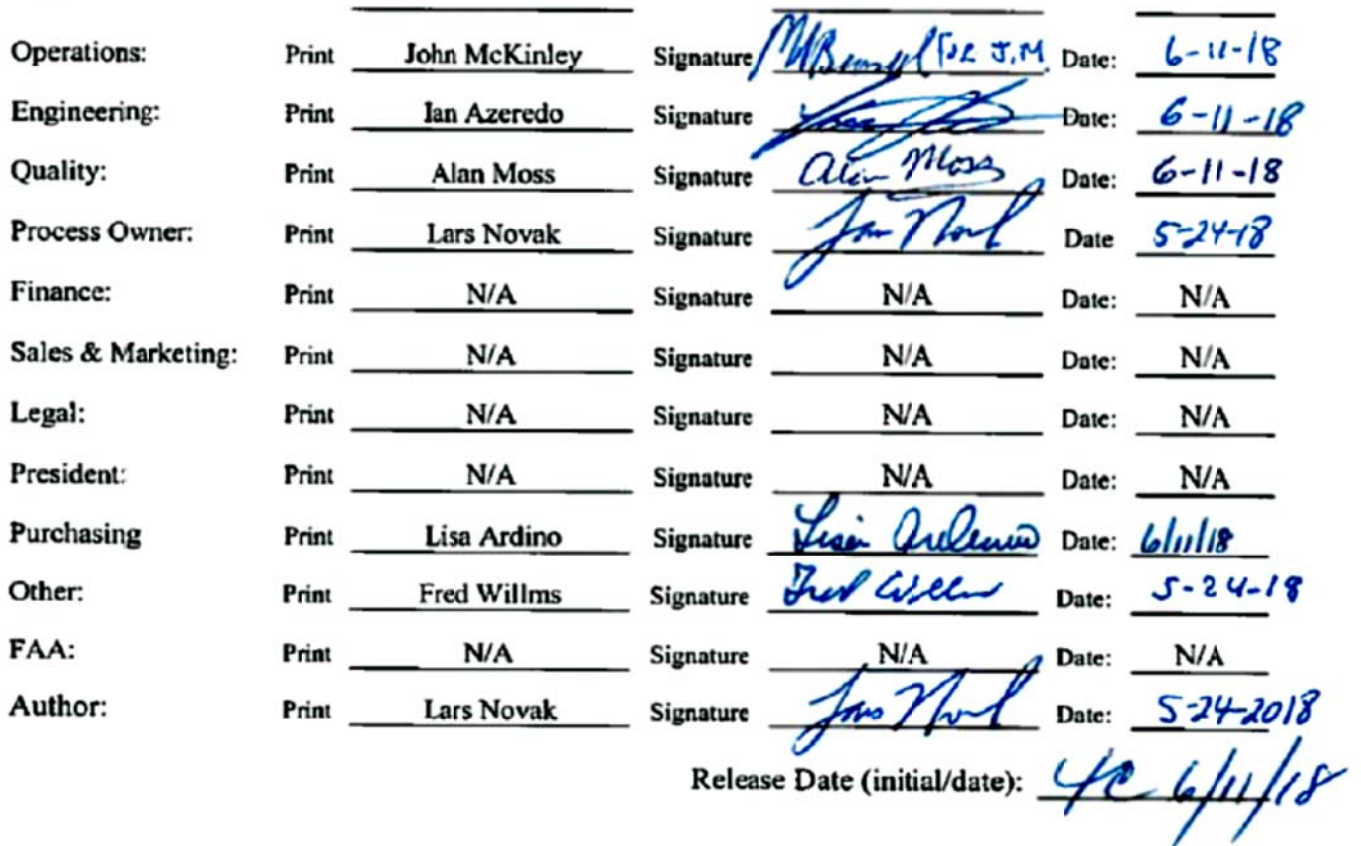 Operations: Print John McKinley Signature for J.M. Date: 6-11-18
Engineering: Print Ian Azeredo Signature Date: 6-11-18
Quality: Print Alan Moss Signature Alan Moss Date: 6-11-18
Process Owner: Print Lars Novak Signature Date 5-24-18
Finance: Print N/A Signature N/A Date: N/A
Sales & Marketing: Print N/A Signature N/A Date: N/A
Legal: Print N/A Signature N/A Date: N/A
President: Print N/A Signature N/A Date: N/A
Purchasing Print Lisa Ardino Signature Lisa Date: 6/11/18
Other: Print Fred Willms Signature Fred Date: 5-24-18
FAA: Print N/A Signature N/A Date: N/A
Author: Print Lars Novak Signature Date: 5-24-2018
Release Date (initial/date): YC 6/11/18